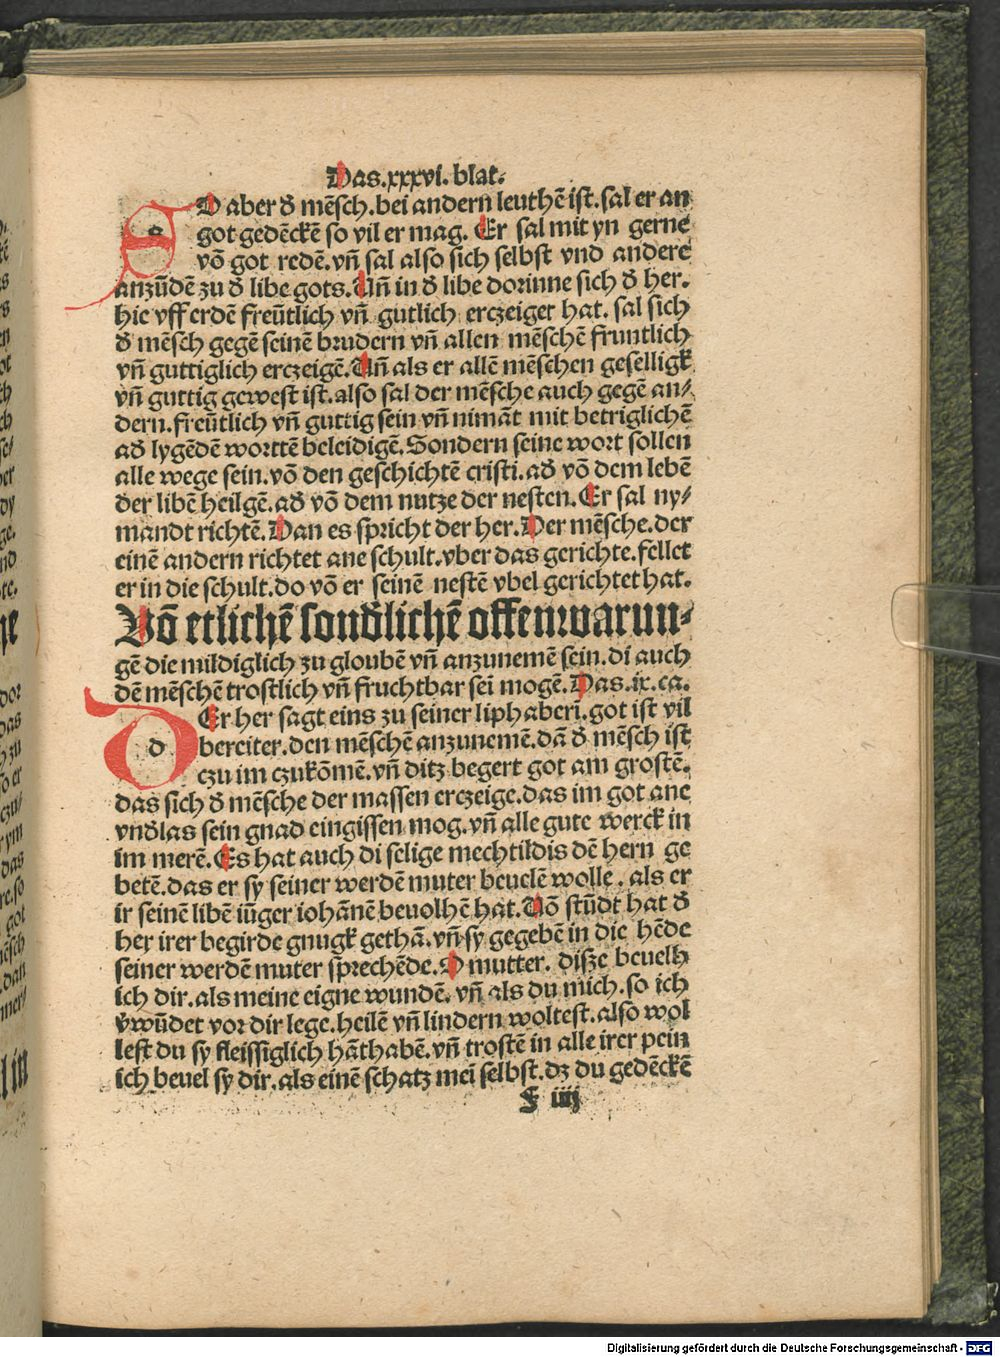 Das.xxxvi.blat.
SO aber đ mēsch.bei andern leuthē ist.sal er an
got gedēckē so vil er mag. Er sal mit yn gerne
vō got redē.vñ sal also sich selbst vnd andere
anzūdē zu đ libe gots.Uñ in đ libe dorinne sich đ her.
hie vff erdē freūtlich vñ gutlich erczeiget hat. sal sich
đ mēsch gegē seinē brudern vñ allen mēschē fruntlich
vñ guttiglich erczeigē.Uñ als er allē mēschen geselligk
vñ guttig gewest ist.also sal der mēsche auch gegē an⸗
dern.freūtlich vñ guttig sein vñ nimāt mit betriglichē
ađ lygēdē worttē beleidigē.Sondern seine wort sollen
alle wege sein.vō den geschichtē cristi.ađ vō dem lebē
der libē heilgē.ađ vō dem nutze der nesten.Er sal ny⸗
mandt richtē.Dan es spricht der her.Der mēsche.der
einē andern richtet ane schult.vber das gerichte.fellet
er in die schult.do vō er seinē nestē vbel gerichtet hat.
Vō etlichē sonđlichē offenwarun⸗
gē die mildiglich zu gloubē vñ anzunemē sein.di auch
dē mēschē trostlich vñ fruchtbar sei mogē.Das.ix.ca.
DEr her sagt eins zu seiner liphaberī.got ist vil
bereiter.den mēschē anzunemē.dā đ mēsch ist
czu im czukōmē.vñ ditz begert got am grostē.
das sich đ mēsche der massen erczeige.das im got ane
vnđlas sein gnad eingissen mog.vñ alle gute werck in
im merē.Es hat auch di selige mechtildis dē hern ge
betē.das er sy seiner werdē muter beuelē wolle. als er
ir seinē libē iūger iohānē beuolhē hat.Uō stūdt hat đ
her irer begirde gnugk gethā.vñ sy gegebē in die hēde
seiner werdē muter sprechēde.O mutter. disze beuelh
ich dir.als meine eigne wundē. vñ als du mich.so ich
v̄wūdet vor dir lege.heilē vñ lindern woltest.also wol
lest du sy fleissiglich hāthabē.vñ trostē in alle irer pein
ich beuel sy dir.als einē schatz mei selbst.dz du gedēckē
F iiij
Digitalisierung gefördert durch die Deutsche Forschungsgemeinschaft - DFG